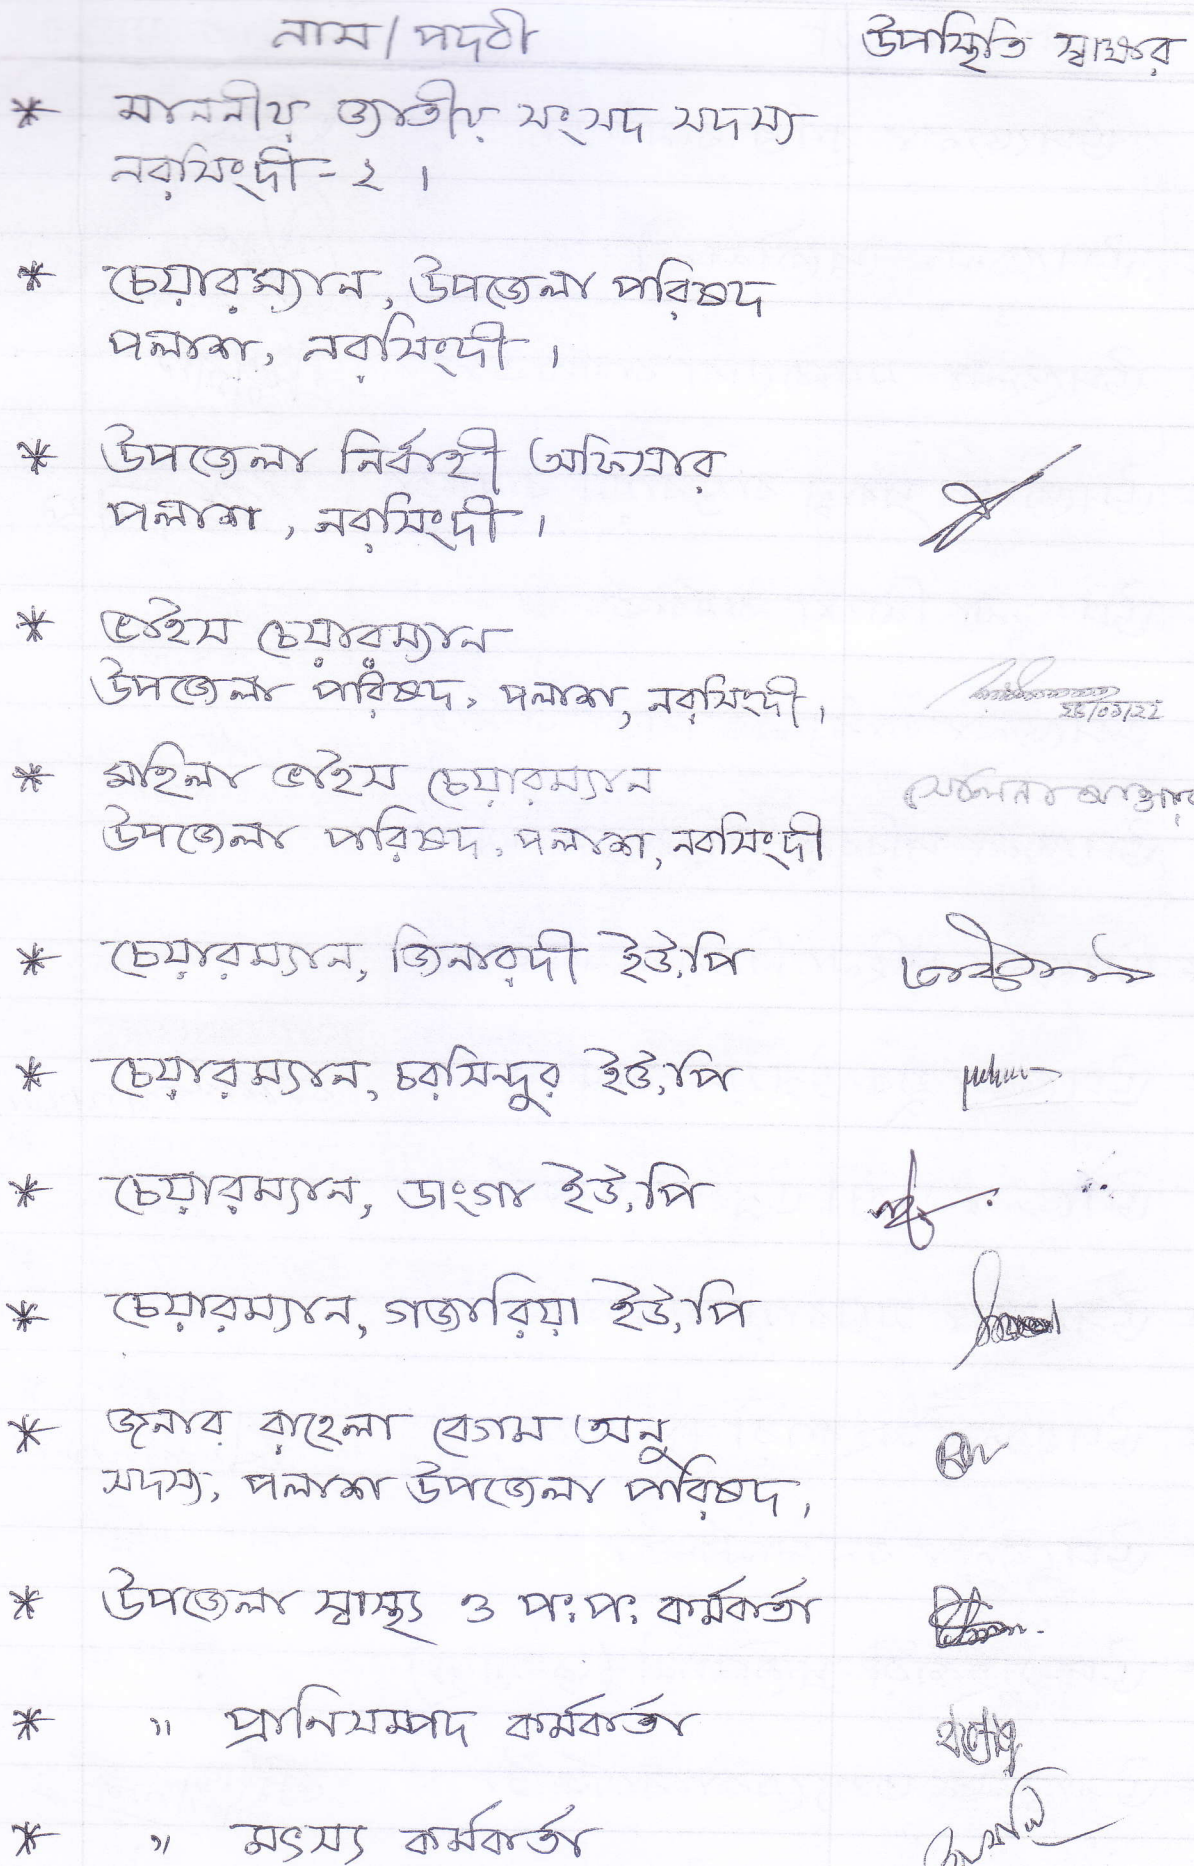 নাম/পদবী উপস্থিতি স্বাক্ষর
* মাননীয় জাতীয় সংসদ সদস্য
নরসিংদী-২।
* চেয়ারম্যান, উপজেলা পরিষদ
পলাশ, নরসিংদী।
* উপজেলা নির্বাহী অফিসার
পলাশ, নরসিংদী।
* ভাইস চেয়ারম্যান
উপজেলা পরিষদ, পলাশ, নরসিংদী।
* মহিলা ভাইস চেয়ারম্যান
সেলিনা আক্তার
উপজেলা পরিষদ, পলাশ, নরসিংদী
* চেয়ারম্যান, জিনারদী ইউ,পি
* চেয়ারম্যান, চরসিন্দুর ইউ,পি
* চেয়ারম্যান, ডাংগা ইউ,পি
* চেয়ারম্যান, গজারিয়া ইউ,পি
* জনাব রাহেলা বেগম অনু
সদস্য, পলাশ উপজেলা পরিষদ,
* উপজেলা স্বাস্থ্য ও প:প: কর্মকর্তা
* " প্রানিসম্পদ কর্মকর্তা
* " মৎস্য কর্মকর্তা